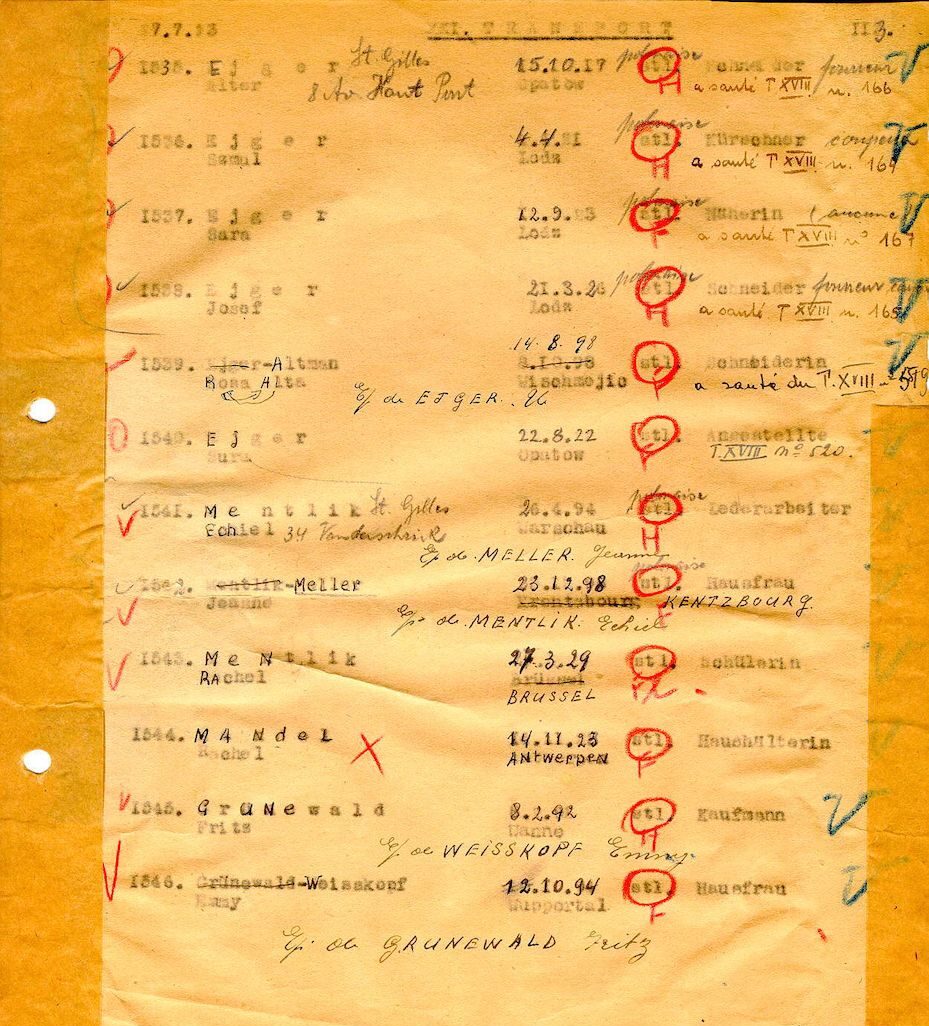 17.7.13 XXI. TRANSPORT 113.
1535. Ejger St. Gilles 15.10.17 polonaise stl. Schneider
Alter 8 Av Haut Pont Opatow H a santé T XVIII n. 166
1536. Ejger 4.4.21 polonaise stl. Kürschner
Szmul Lodz H a santé T XVIII n. 164
1537. Ejger 12.9.23 polonaise stl. Näherin (aucune
Sara Lodz F a santé T XVIII n° 167
1538. Ejger 21.3.26 polonaise stl. Schneider
Josef Lodz H a santé T XVIII n. 165
14.8.98
1539. Ejger-Altman 8.10.98 stl. Schneiderin
Rosa Alta Wischmojic F a santé du T. XVIII
Ep de EJGER.
1540. Ejger 22.8.22 stl. Angestellte
Sura Opatow F T. XVIII n° 520.
1541. Mentlik St. Gilles 26.4.94 polonaise stl. Lederarbeiter
Echiel 34 Vanderschrick Warschau H
Ep de. MELLER. Jeanne
1542. Mentlik-Meller 23.12.98 polonaise stl. Hausfrau
Jeanne Krentzbourg KENTZBOURG. F
Ep. de. MENTLIK. Echiel
1543. Mentlik 27.3.29 stl. Schülerin
Rachel Brüssel
BRUSSEL
1544. MANdel 14.11.23 stl. Haushälterin
Rachel X Antwerpen F
1545. Grünewald 8.2.92 stl. Kaufmann
Fritz Wanne H
Ep de WEISSKOPF Emmy
1546. Grünewald-Weisskopf 12.10.94 stl. Hausfrau
Emmy Wuppertal F
Ep. de GRUNEWALD Fritz